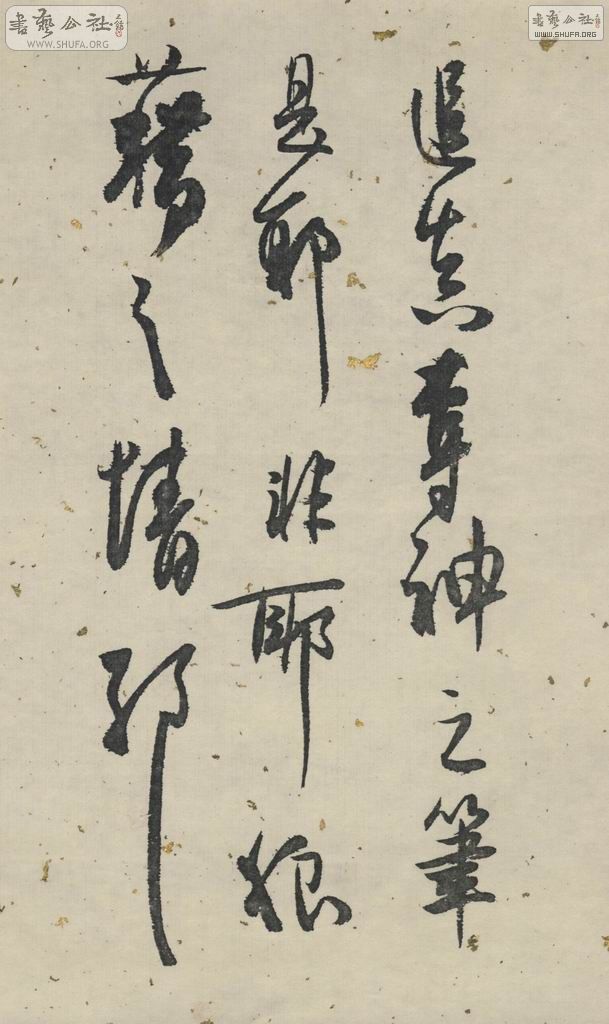 書藝公社
WWW.SHUFA.ORG
書藝公社
WWW.SHUFA.ORG
追真奪神之筆
是耶非耶狼
藉之情